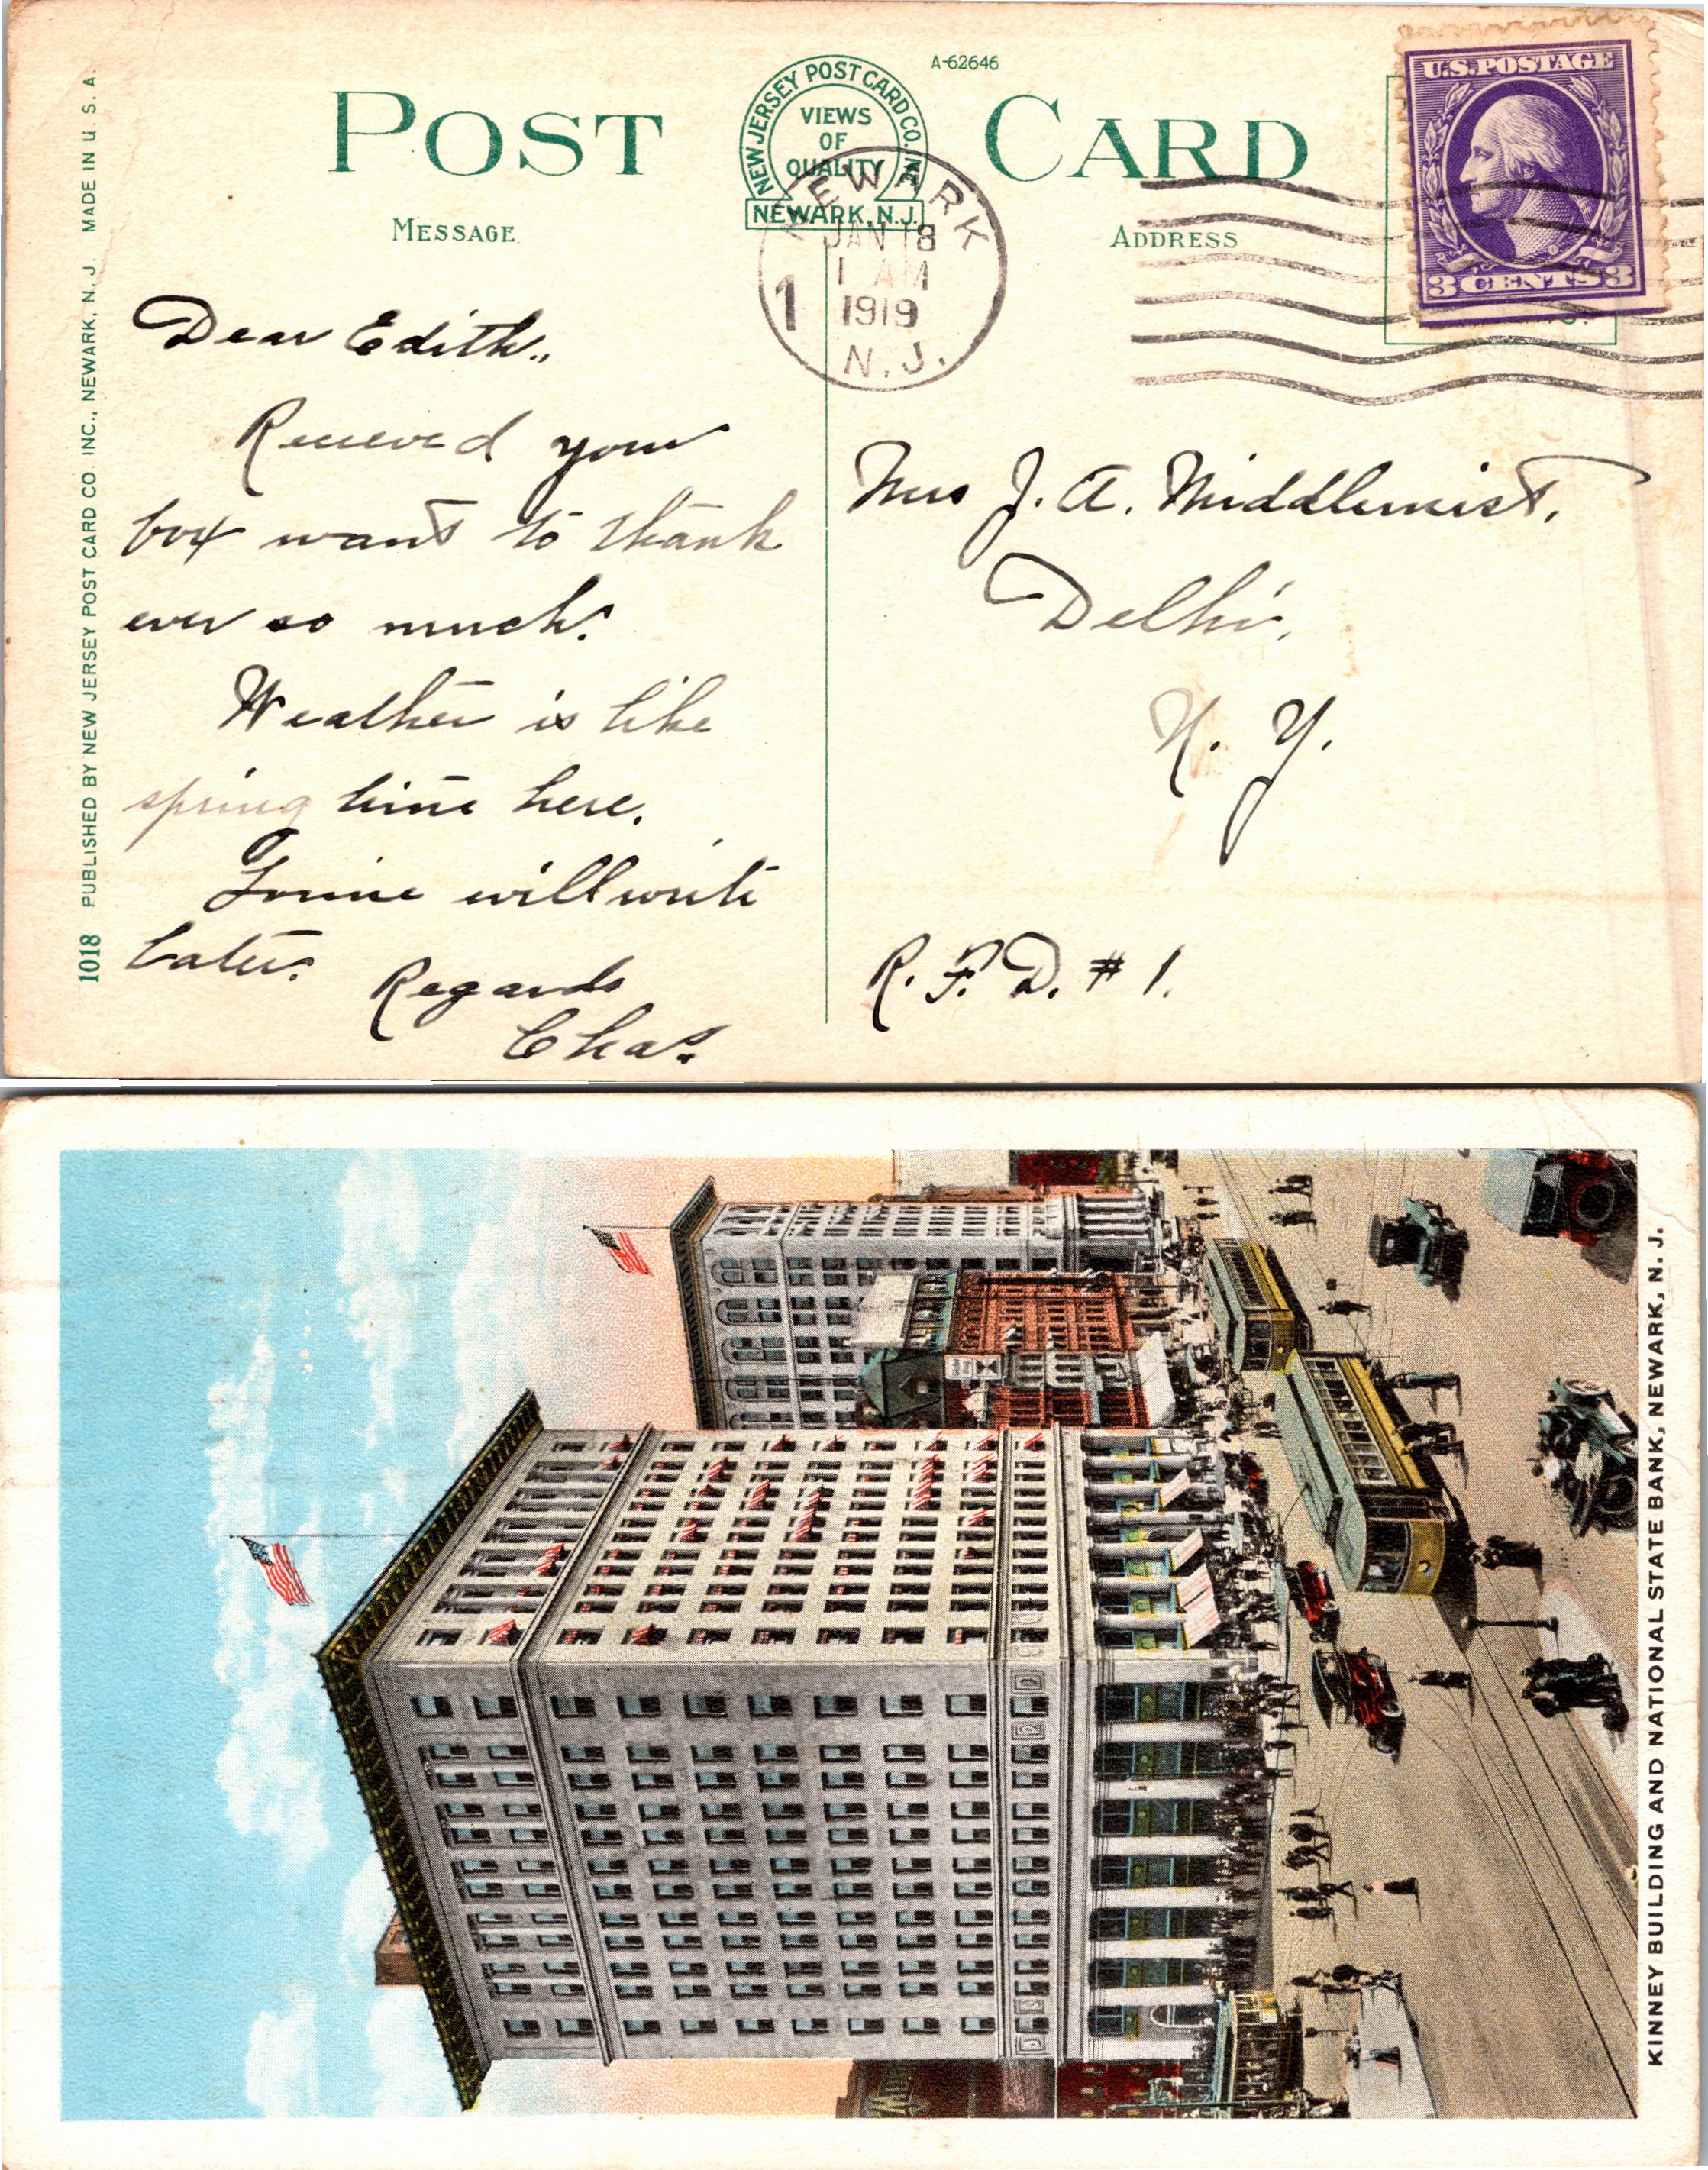 A-62646
POST CARD
NEW JERSEY POST CARD CO. INC.
VIEWS
OF
QUALITY
NEWARK, N.J.
U.S. POSTAGE
3 CENTS 3
MESSAGE
ADDRESS
NEWARK
JAN 18
1 AM
1919
N.J.
1
Dear Edith,.
Received your
box want to thank
ever so much.
Weather is like
spring time here.
will write
later.
Regards
Chas.
Mrs J. A. Middlemist,
Delhi,
N. Y.
R. F. D. # 1.
1018 PUBLISHED BY NEW JERSEY POST CARD CO. INC., NEWARK, N. J. MADE IN U. S. A.
KINNEY BUILDING AND NATIONAL STATE BANK, NEWARK, N. J.